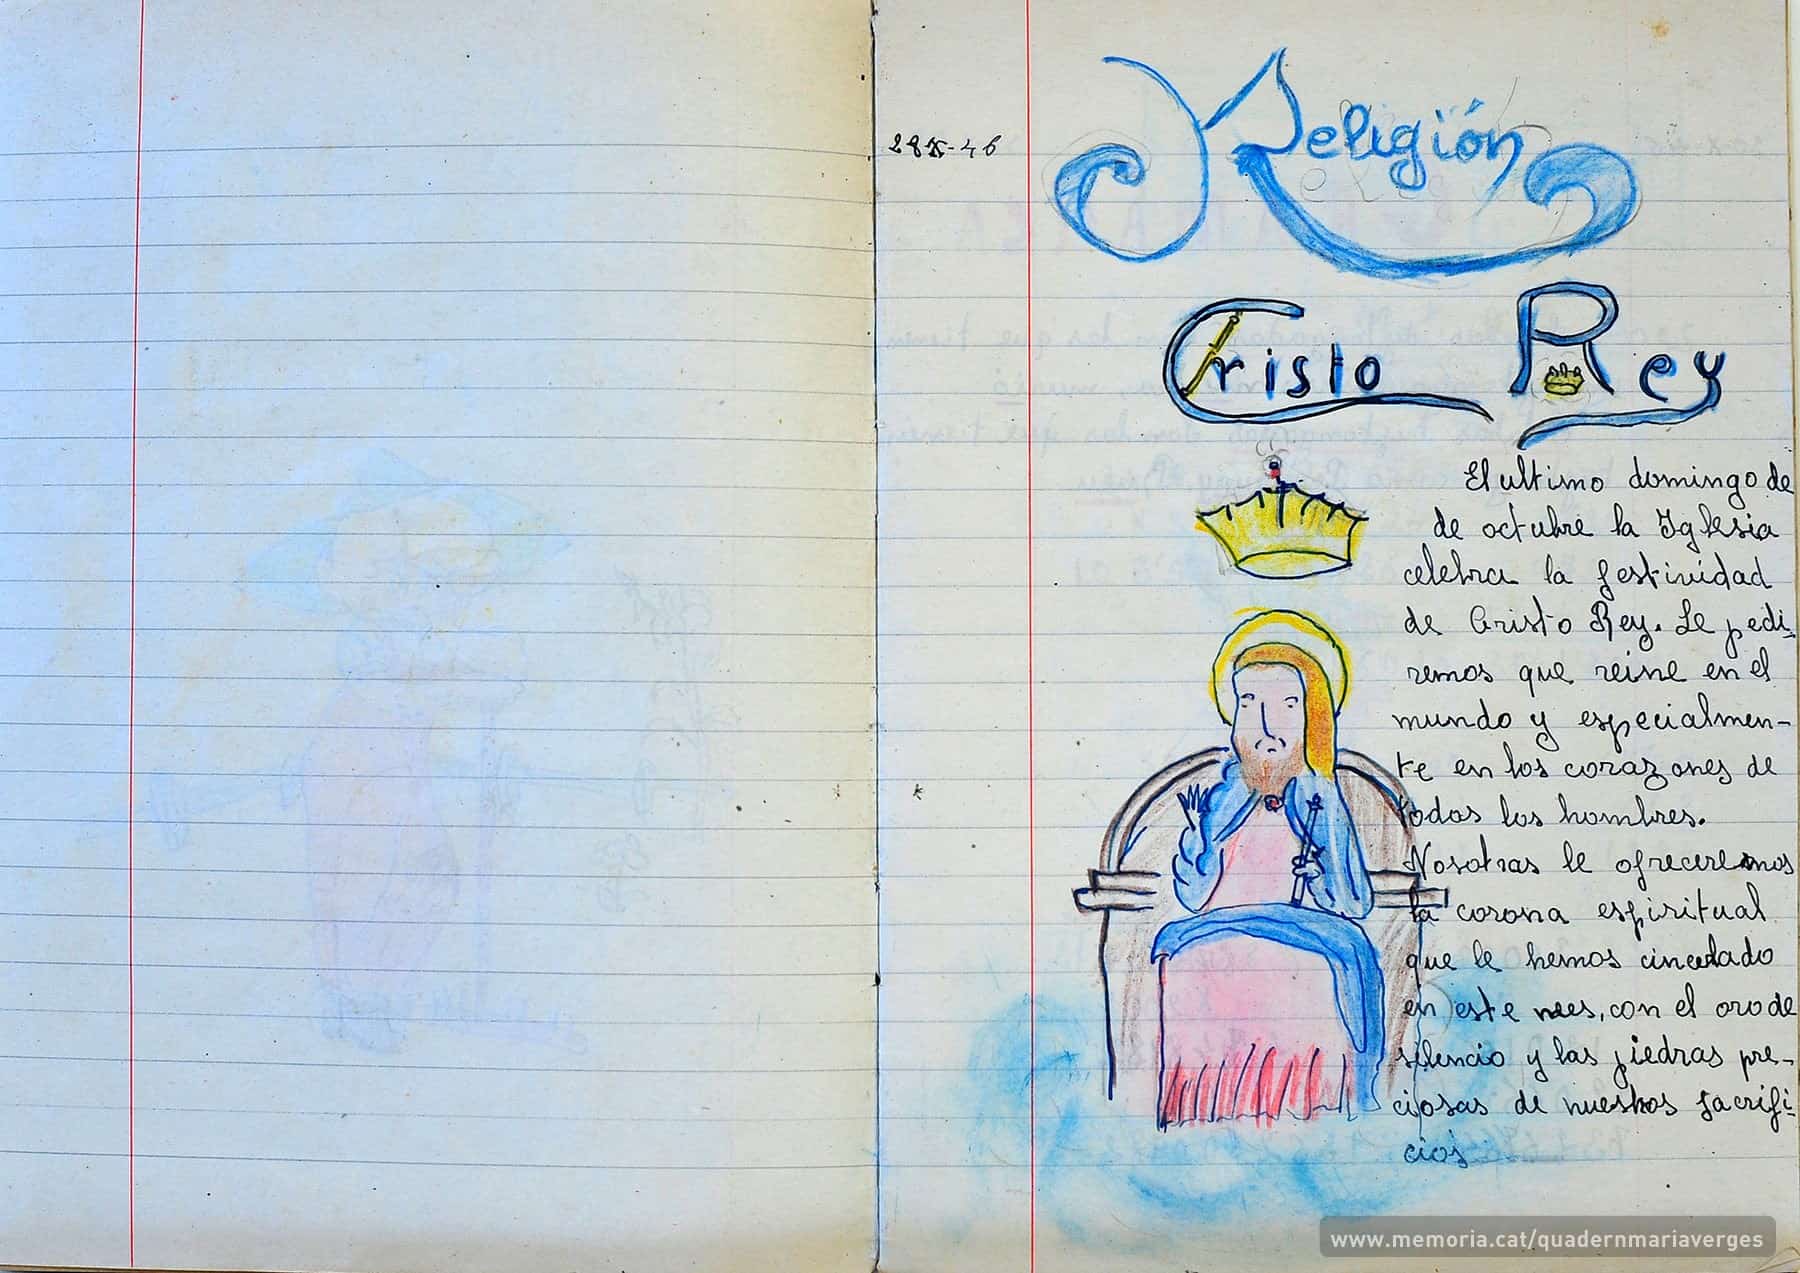 28-X-46
Religión
Cristo Rey
El ultimo domingo de
de octubre la Iglesia
celebra la festividad
de Cristo Rey. Le pedi-
remos que reine en el
mundo y especialmen-
te en los corazones de
todos los hombres.
Nosotras le ofreceremos
la corona espiritual
que le hemos cincelado
en este mes, con el oro de
silencio y las piedras pre-
ciosas de nuestros sacrifi-
cios
www.memoria.cat/quadernmariaverges